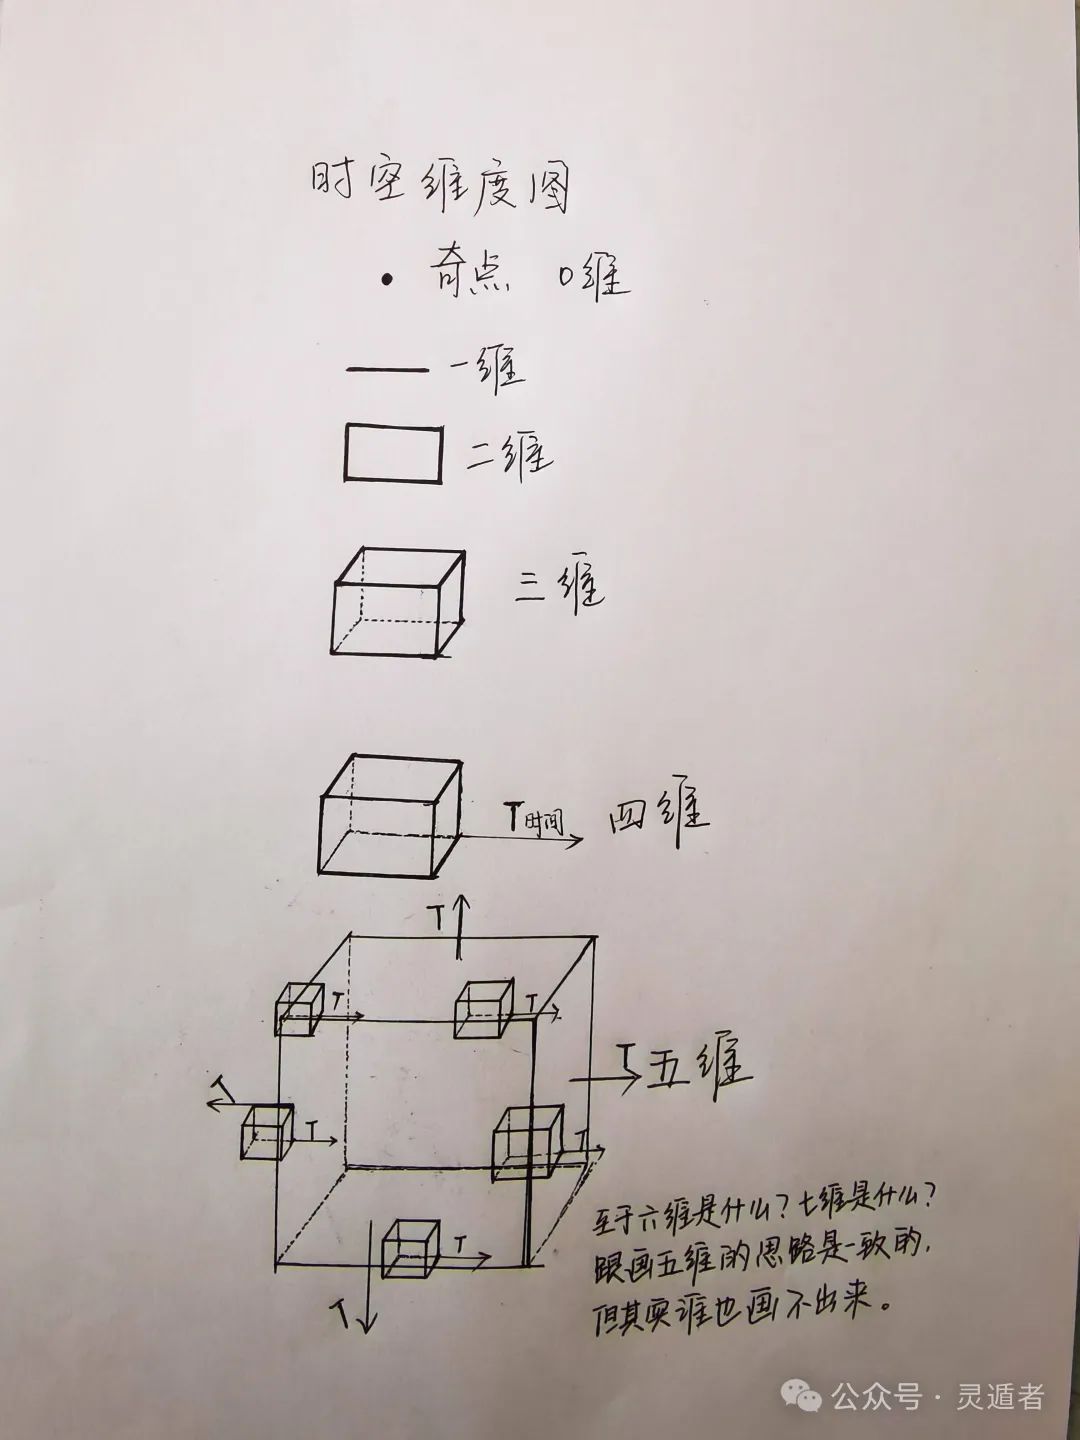 时空维度图
奇点 0维
一维
二维
三维
T时间 四维
T
T
T
T 五维
T
T
T
T
T
至于六维是什么？七维是什么？
跟画五维的思路是一致的，
但其实谁也画不出来。
公众号·灵遁者